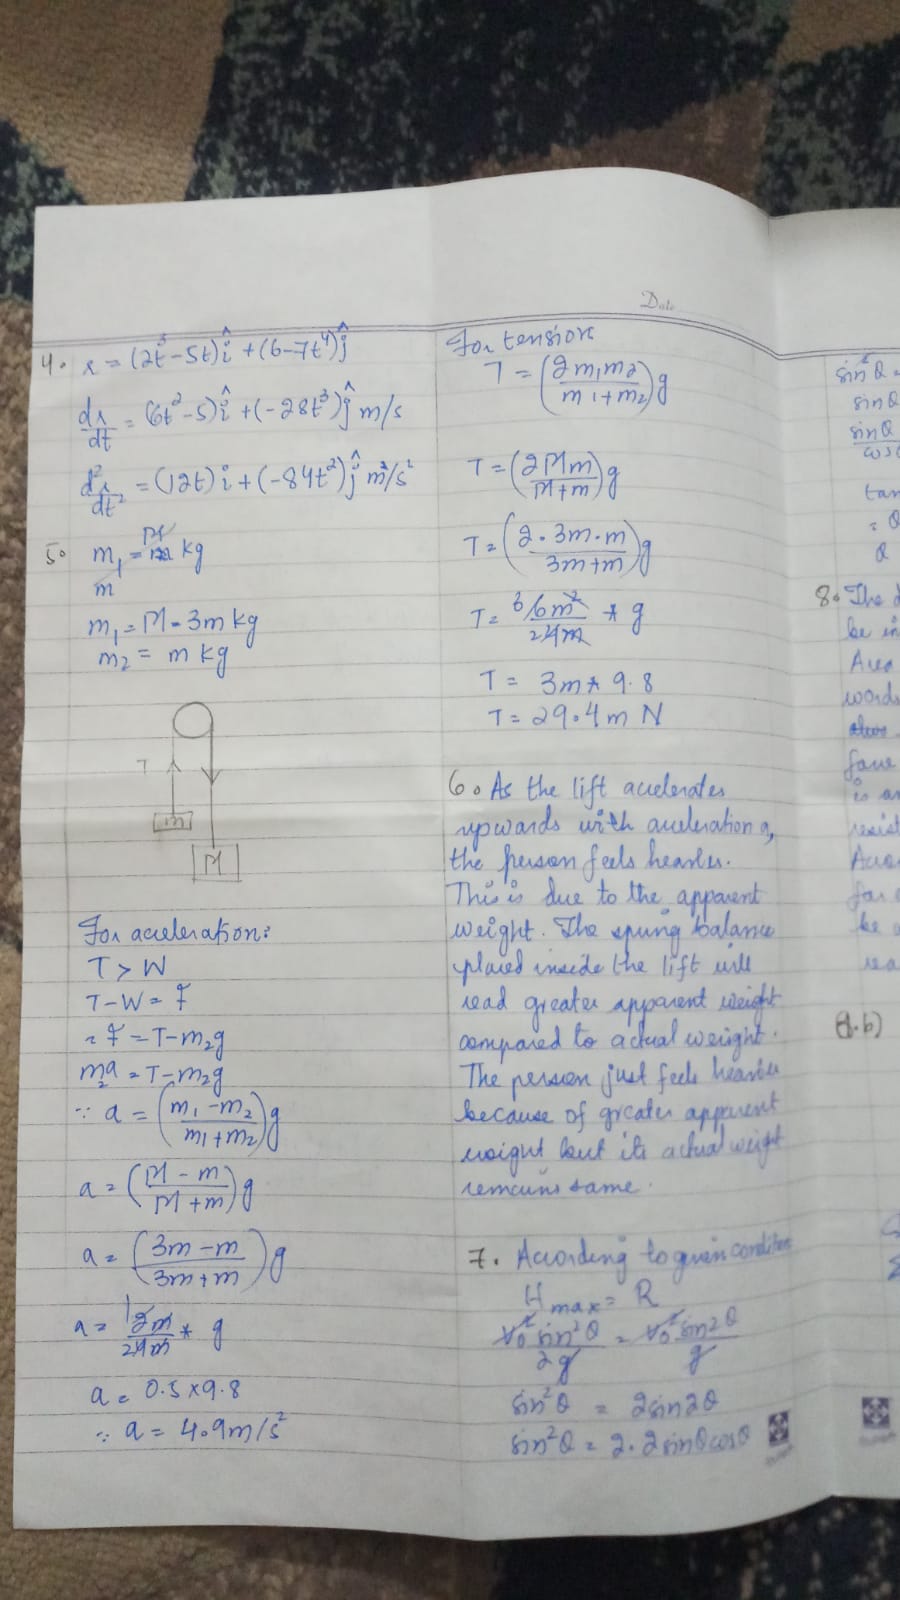 Date
4. r = (2t³-5t)î + (6-7t⁴)ĵ
dr/dt = (6t²-5)î + (-28t³)ĵ m/s
d²r/dt² = (12t)î + (-84t²)ĵ m/s²
5. m₁ = M kg
m
m₁ = M = 3m kg
m₂ = m kg
T
m
M
For acceleration:
T > W
T-W = F
F = T-m₂g
m₂a = T-m₂g
∵ a = (m₁-m₂/m₁+m₂)g
a = (M-m/M+m)g
a = (3m-m/3m+m)g
a = 2m/4m * g
a = 0.5×9.8
∵ a = 4.9m/s²
For tension
T = (2m₁m₂/m₁+m₂)g
T = (2Mm/M+m)g
T = (2·3m·m/3m+m)g
T = 6m²/4m * g
T = 3m * 9.8
T = 29.4m N
6. As the lift accelerates
upwards with acceleration a,
the person feels heavier.
This is due to the apparent
weight. The spring balance
placed inside the lift will
read greater apparent weight
compared to actual weight.
The person just feels heavier
because of greater apparent
weight but its actual weight
remains same.
7. According to given condition
H max = R
V₀² sin²θ/2g = V₀² sin2θ/g
sin²θ = 2sin2θ
sin²θ = 2·2sinθcosθ
sin²θ =
sinθ
sinθ
tan
= θ
θ
8. The
be in
Area
words
is
(1.b)